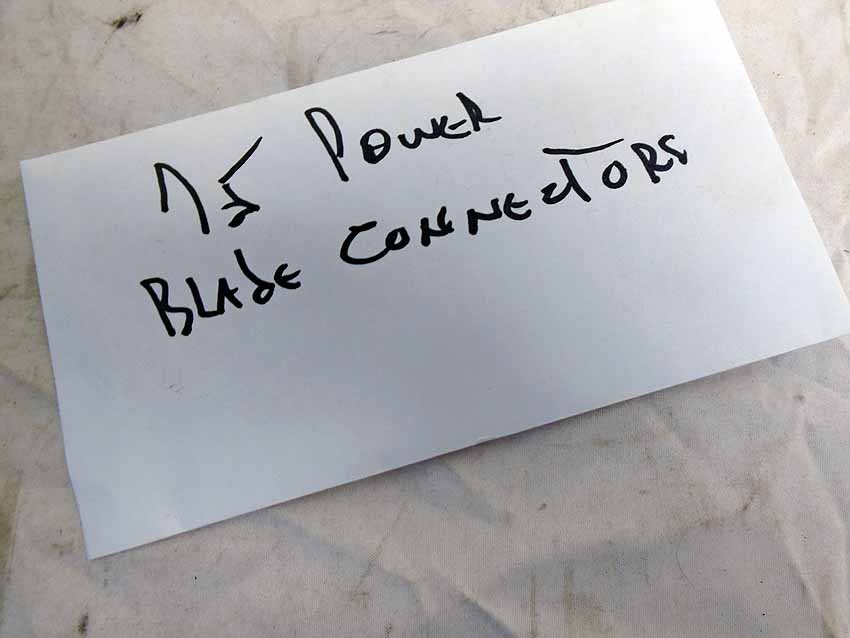 75 POWER
BLADE CONNECTORS